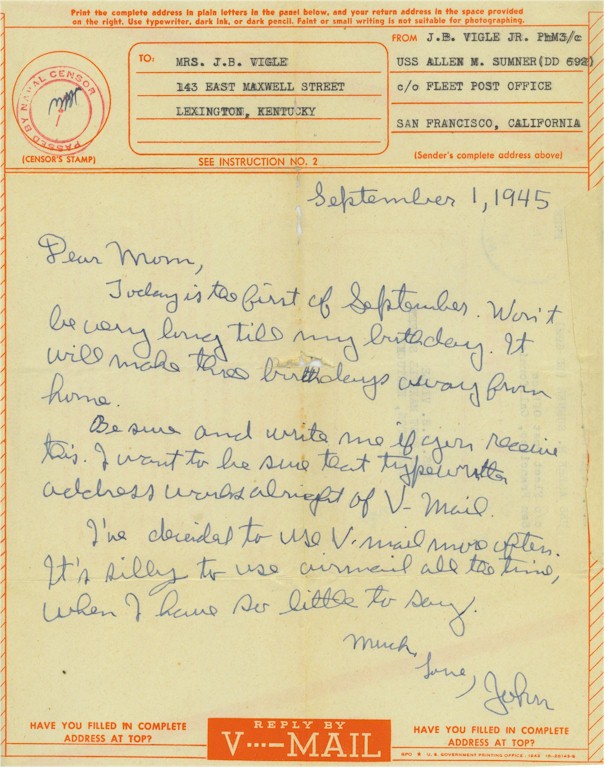 Print the complete address in plain letters in the panel below, and your return address in the space provided
on the right. Use typewriter, dark ink, or dark pencil. Faint or small writing is not suitable for photographing.
PASSED BY NAVAL CENSOR
(CENSOR'S STAMP)
TO:
MRS. J.B. VIGLE
143 EAST MAXWELL STREET
LEXINGTON, KENTUCKY
SEE INSTRUCTION NO. 2
FROM J.B. VIGLE JR. PhM3/c
USS ALLEN M. SUMNER(DD 692)
c/o FLEET POST OFFICE
SAN FRANCISCO, CALIFORNIA
(Sender's complete address above)
September 1, 1945
Dear Mom,
Today is the first of September. Won't
be very long till my birthday. It
will make three birthdays away from
home.
Be sure and write me if you receive
this. I want to be sure that typewritten
address works alright of V-Mail.
I've decided to use V-mail more often.
It's silly to use airmail all the time,
when I have so little to say.
Much
love,
John
HAVE YOU FILLED IN COMPLETE
ADDRESS AT TOP?
REPLY BY
V···-MAIL
HAVE YOU FILLED IN COMPLETE
ADDRESS AT TOP?
U. S. GOVERNMENT PRINTING OFFICE